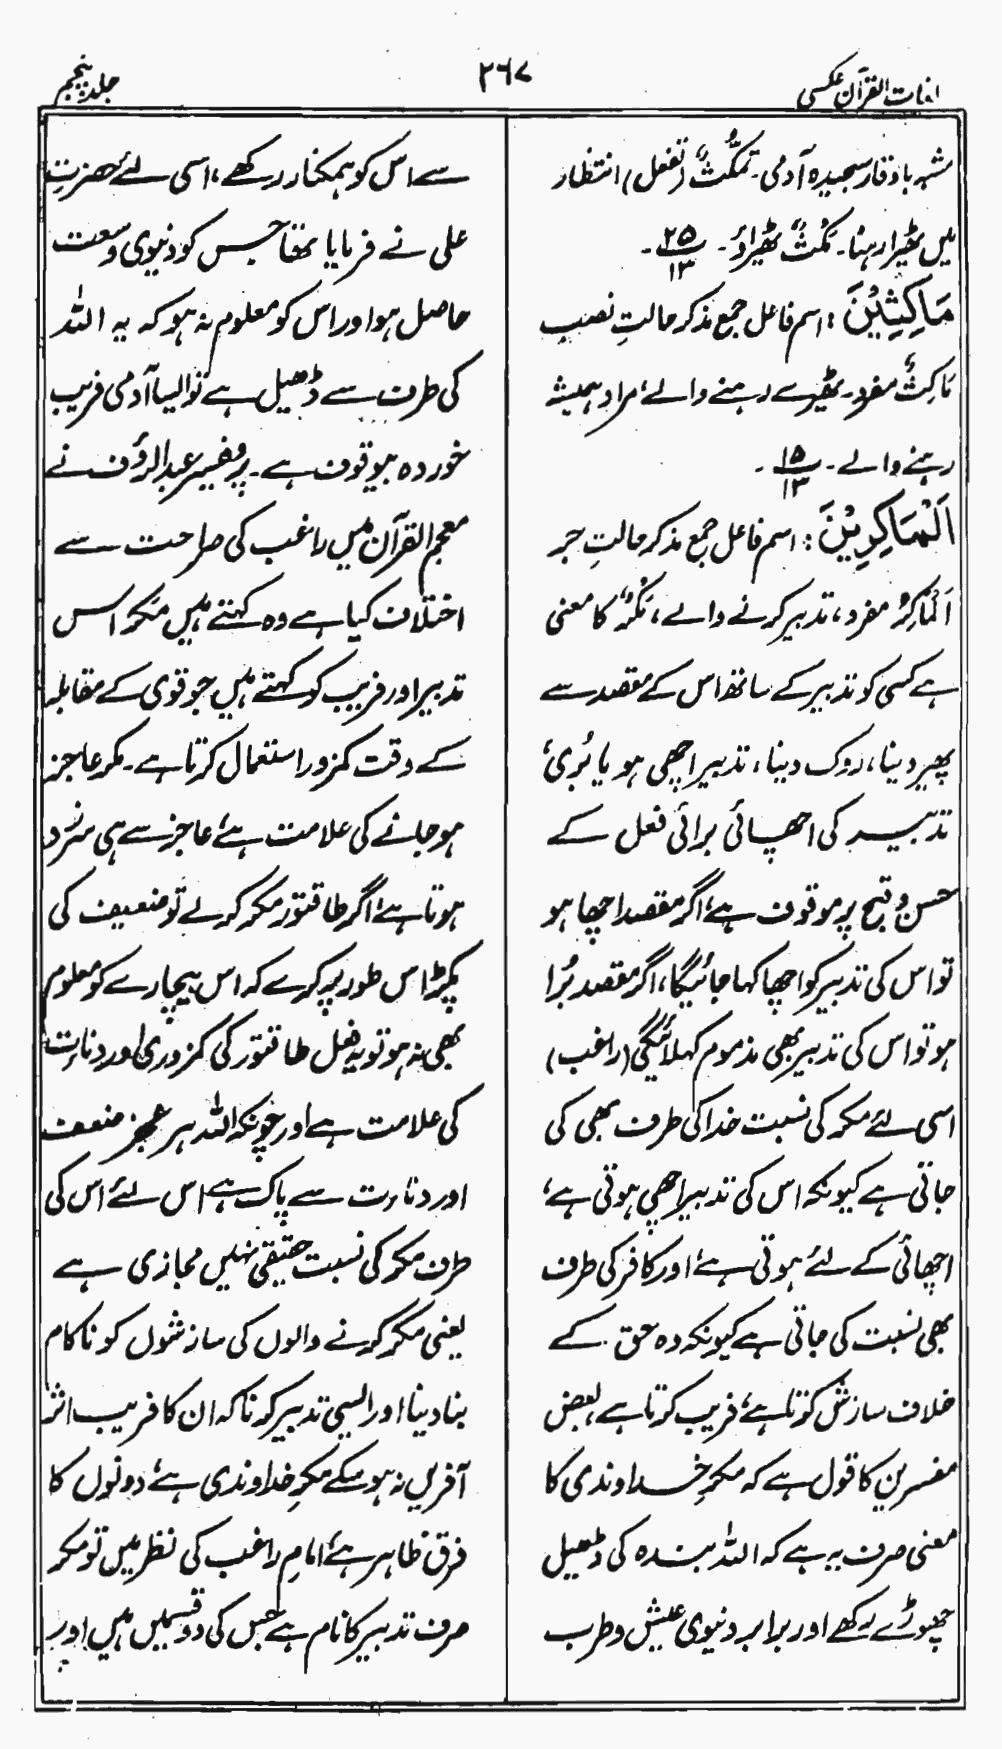 لغات القرآن عکسی
۲۶۷
جلد پنجم
مشہر باوقار سنجیدہ آدمی۔ تَمَکُّثٌ (تفعل) انتظار
میں ٹھیرا رہنا۔ مُکْثٌ ٹھیراؤ۔ ۲۵/۱۳۔
مَاکِثِیْنَ: اسم فاعل جمع مذکر حالتِ نصب
مَاکِثٌ مفرد۔ ٹھیرے رہنے والے، مراد ہمیشہ
رہنے والے۔ ۱۵/۱۳۔
اَلْمَاکِرِیْنَ: اسم فاعل جمع مذکر حالتِ جر
اَلْمَاکِرُ مفرد، تدبیر کرنے والے، مَکْرٌ کا معنی
ہے کسی کو تدبیر کے ساتھ اس کے مقصد سے
پھیر دینا، روک دینا، تدبیر اچھی ہو یا بُری،
تدبیر کی اچھائی برائی فعل کے
حسن و قبح پر موقوف ہے، اگر مقصد اچھا ہو
تو اس کی تدبیر کو اچھا کہا جائیگا، اگر مقصد بُرا
ہو تو اس کی تدبیر بھی مذموم کہلائیگی (راغب)
اسی لئے مکر کی نسبت خدا کی طرف بھی کی
جاتی ہے کیونکہ اس کی تدبیر اچھی ہوتی ہے،
اچھائی کے لئے ہوتی ہے، اور کافر کی طرف
بھی نسبت کی جاتی ہے کیونکہ وہ حق کے
خلاف سازش کرتا ہے، فریب کرتا ہے بعض
مفسرین کا قول ہے کہ مکرِ خداوندی کا
معنی صرف یہ ہے کہ اللہ بندہ کی ڈھیل
چھوڑے رکھے اور برابر دنیوی عیش و طرب
سے اس کو ہمکنار رکھے، اسی لئے حضرت
علی نے فرمایا تھا جس کو دنیوی وسعت
حاصل ہو اور اس کو معلوم نہ ہو کہ یہ اللہ
کی طرف سے ڈھیل ہے تو ایسا آدمی فریب
خوردہ بیوقوف ہے۔ پروفیسر عبدالرؤف نے
معجم القرآن میں راغب کی صراحت سے
اختلاف کیا ہے وہ کہتے ہیں مَکر اس
تدبیر اور فریب کو کہتے ہیں جو قوی کے مقابلہ
کے وقت کمزور استعمال کرتا ہے۔ مکر عاجز
ہوجانے کی علامت ہے، عاجز سے ہی سرزد
ہوتا ہے، اگر طاقتور مکر کرلے تو ضعیف کی
پکڑ اس طور پر کرے کہ اس بیچارے کو معلوم
بھی نہ ہو تو یہ فعل طاقتور کی کمزوری اور دنارت
کی علامت ہے اور چونکہ اللہ ہر عجز ضعف
اور دنارت سے پاک ہے اس لئے اس کی
طرف مکر کی نسبت حقیقی نہیں مجازی ہے
یعنی مکر کرنے والوں کی سازشوں کو ناکام
بنادینا اور ایسی تدبیر کہ تاکہ ان کا فریب اثر
آفریں نہ ہوسکے مکرِ خداوندی ہے، دونوں کا
فرق ظاہر ہے، امام راغب کی نظر میں تو مکر
صرف تدبیر کا نام ہے جس کی دو قسمیں ہیں اور